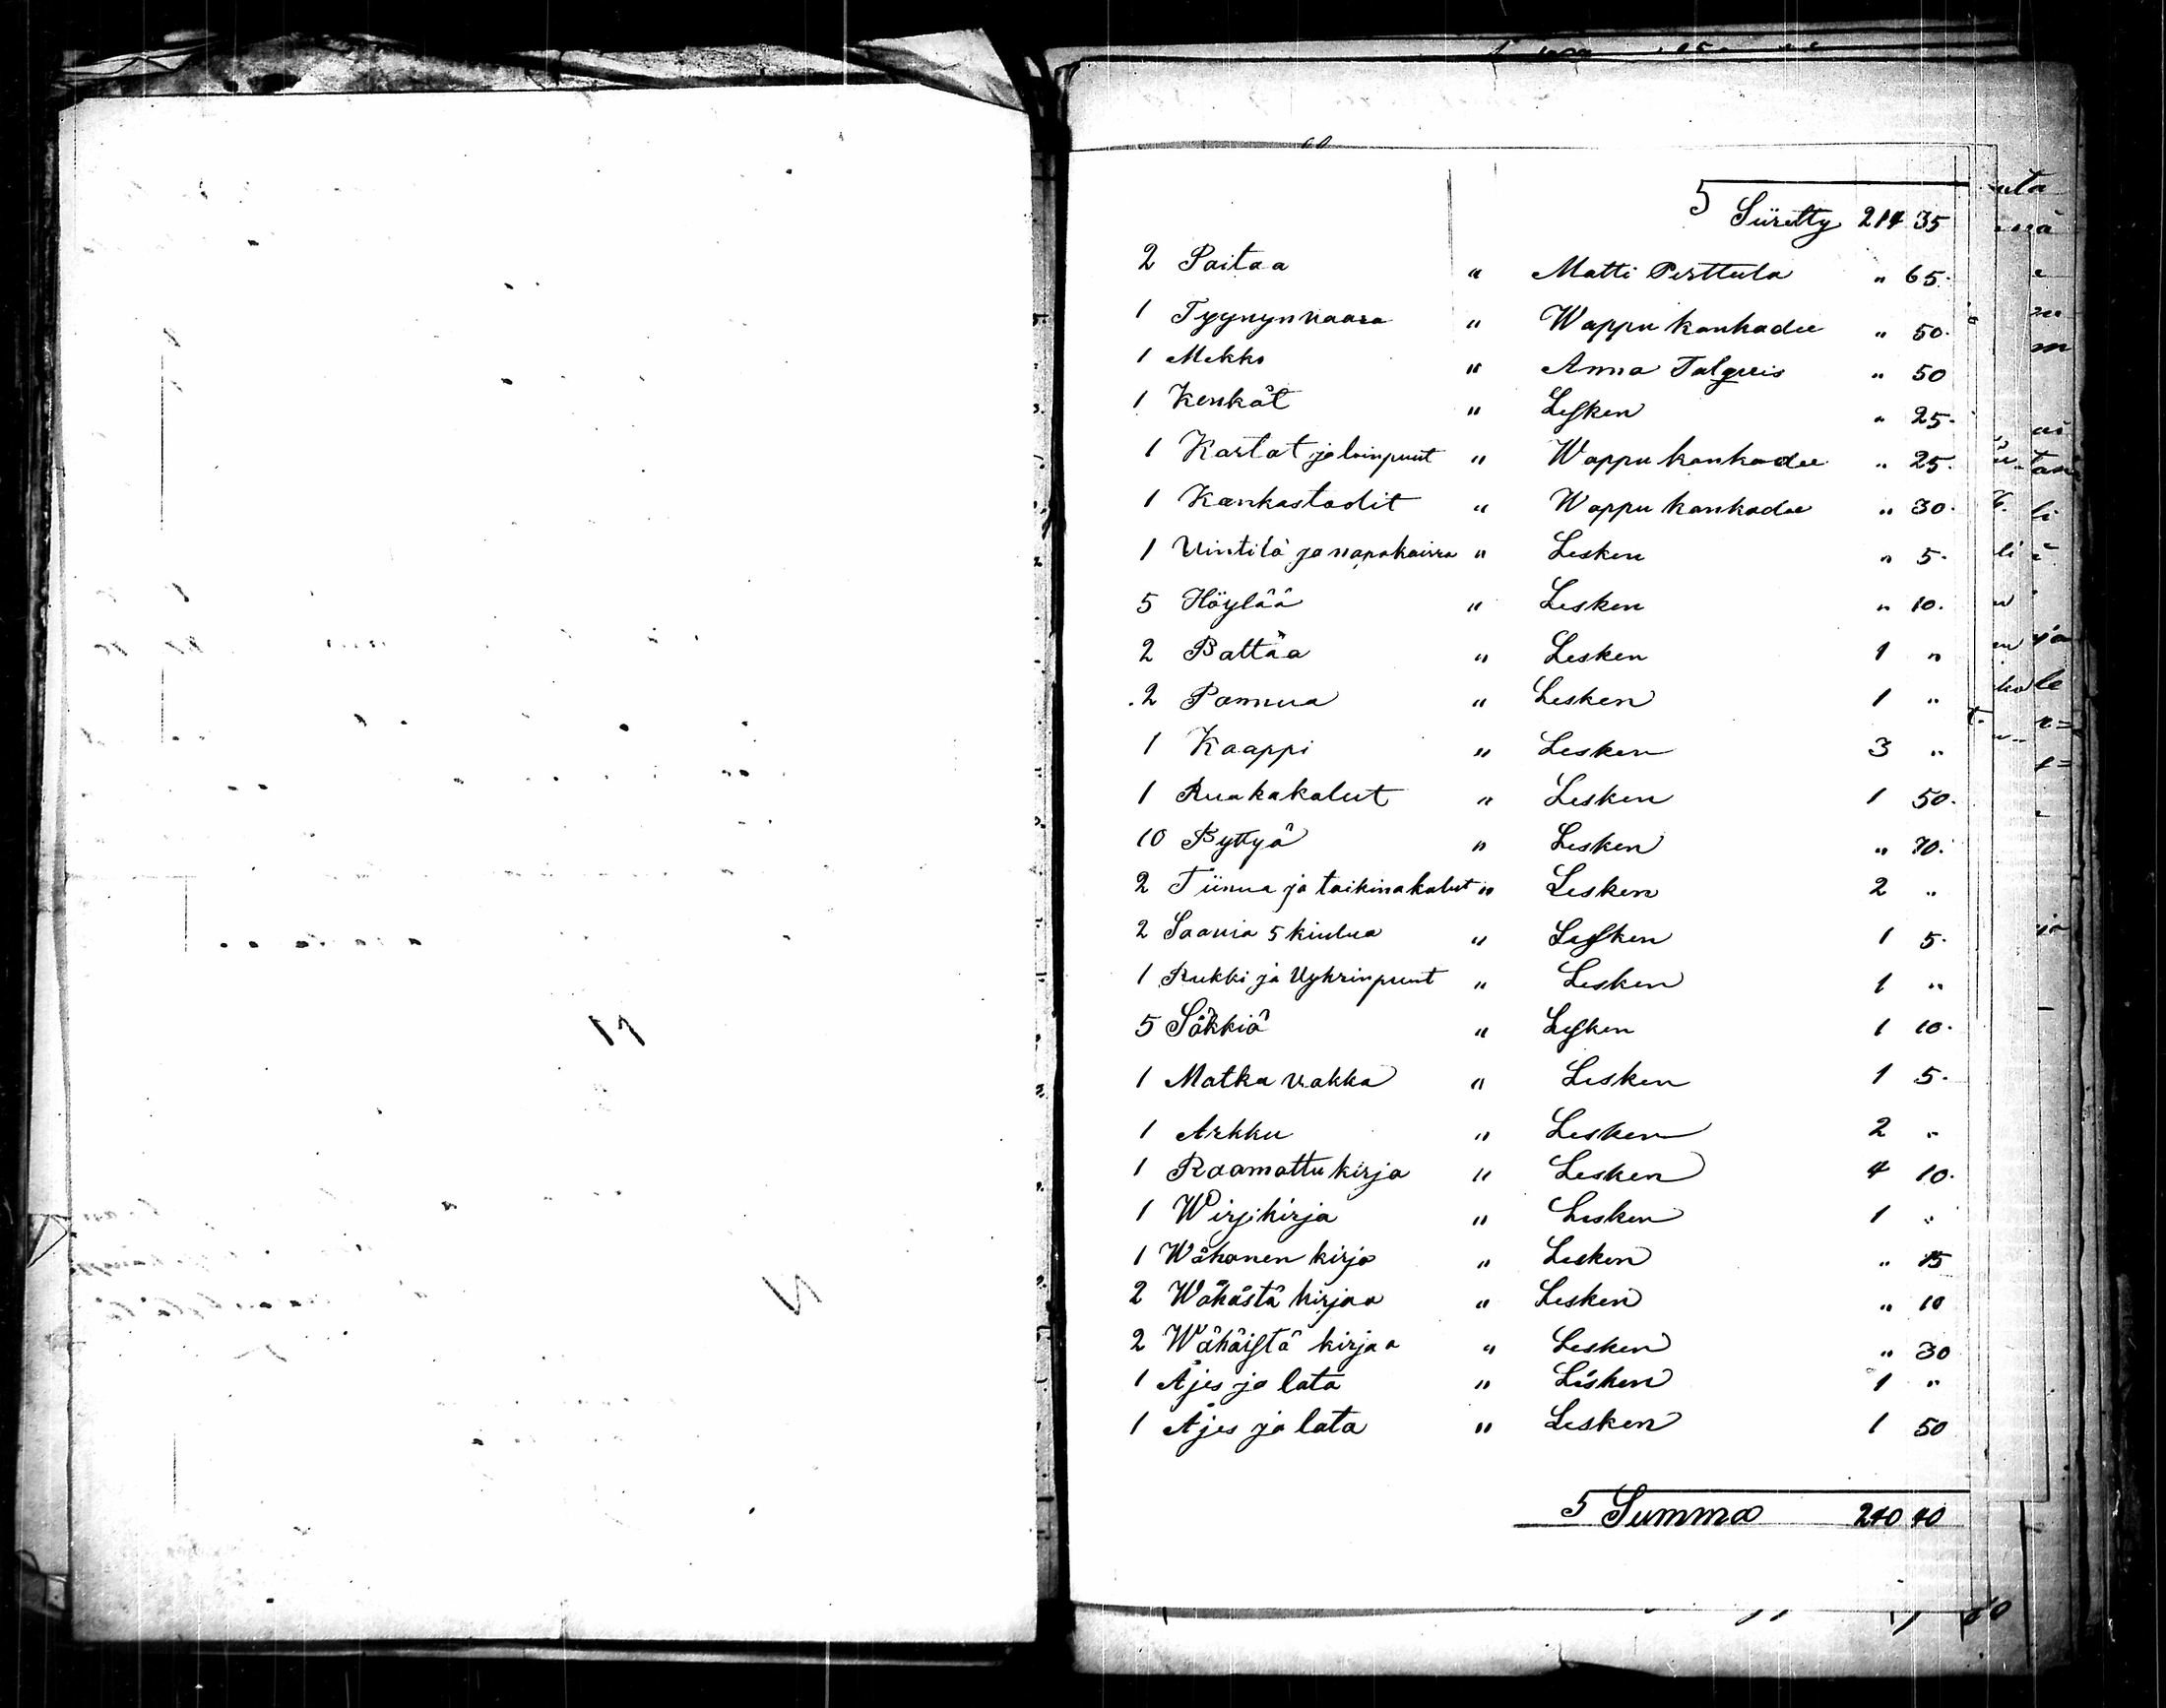 5 Siiretty 214 35
2 Paitaa " Matti Perttula " 65.
1 Tyynynvaara " Wappu kankadee " 50.
1 Mekko " Anna Talqvis " 50
1 Kenkät " Lesken " 25.
1 Kartat ja loinpuut " Wappu kankadee " 25.
1 Kankastodit " Wappu kankadee " 30.
1 Vintilä ja napakaira " Lesken " 5.
5 Höylää " Lesken " 10.
2 Pattaa " Lesken 1 "
2 Pannua " Lesken 1 "
1 Kaappi " Lesken 3 "
1 Ruakakalut " Lesken 1 50.
10 Pyttyä " Lesken " 70.
2 Tiinua ja taikinakalut " Lesken 2 "
2 Saavia 5 kiulua " Lesken 1 5.
1 Rukki ja Vyhrinpuut " Lesken 1 "
5 Säkkiä " Lesken 1 10.
1 Matka vakka " Lesken 1 5.
1 Arkku " Lesken 2 "
1 Raamattu kirja " Lesken 4 10.
1 Wirsikirja " Lesken 1 "
1 Wähänen kirja " Lesken " 15
2 Wähästä kirjaa " Lesken " 10
2 Wähäistä kirjaa " Lesken " 30
1 Äjes ja lata " Lesken 1 "
1 Äjes ja lata " Lesken 1 50
5 Summa 240 40